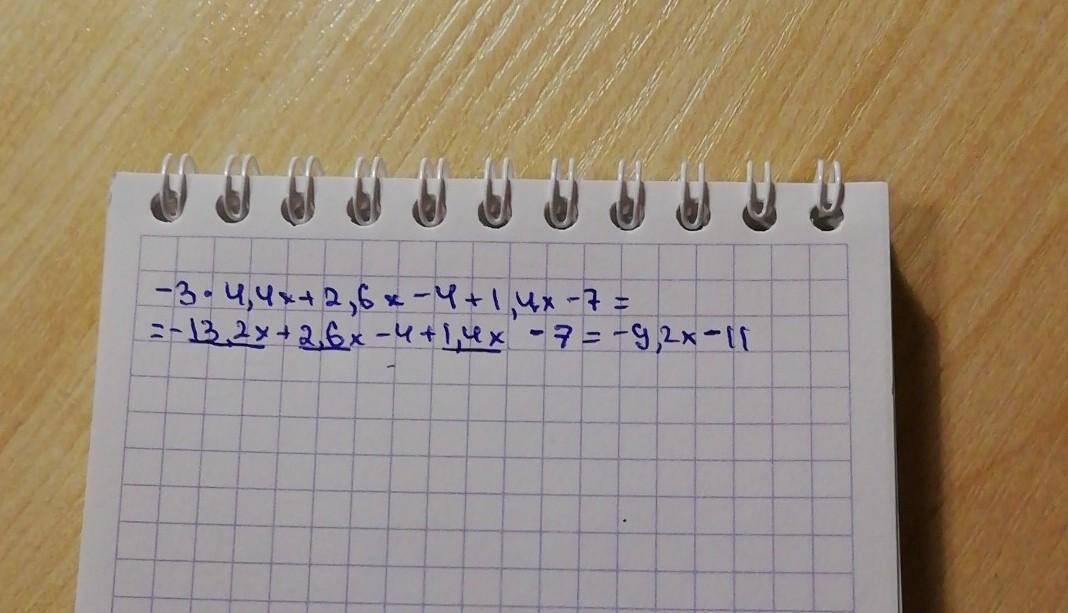 -3·4,4x+2,6x-4+1,4x-7=
=-13,2x+2,6x-4+1,4x-7=-9,2x-11